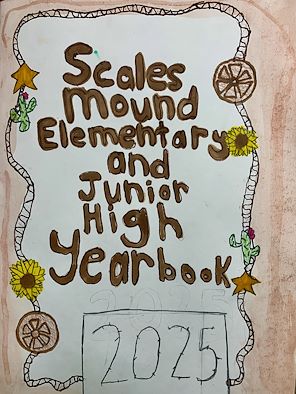 Scales
Mound
Elementary
and
Junior
High
Yearbook
2025
2025